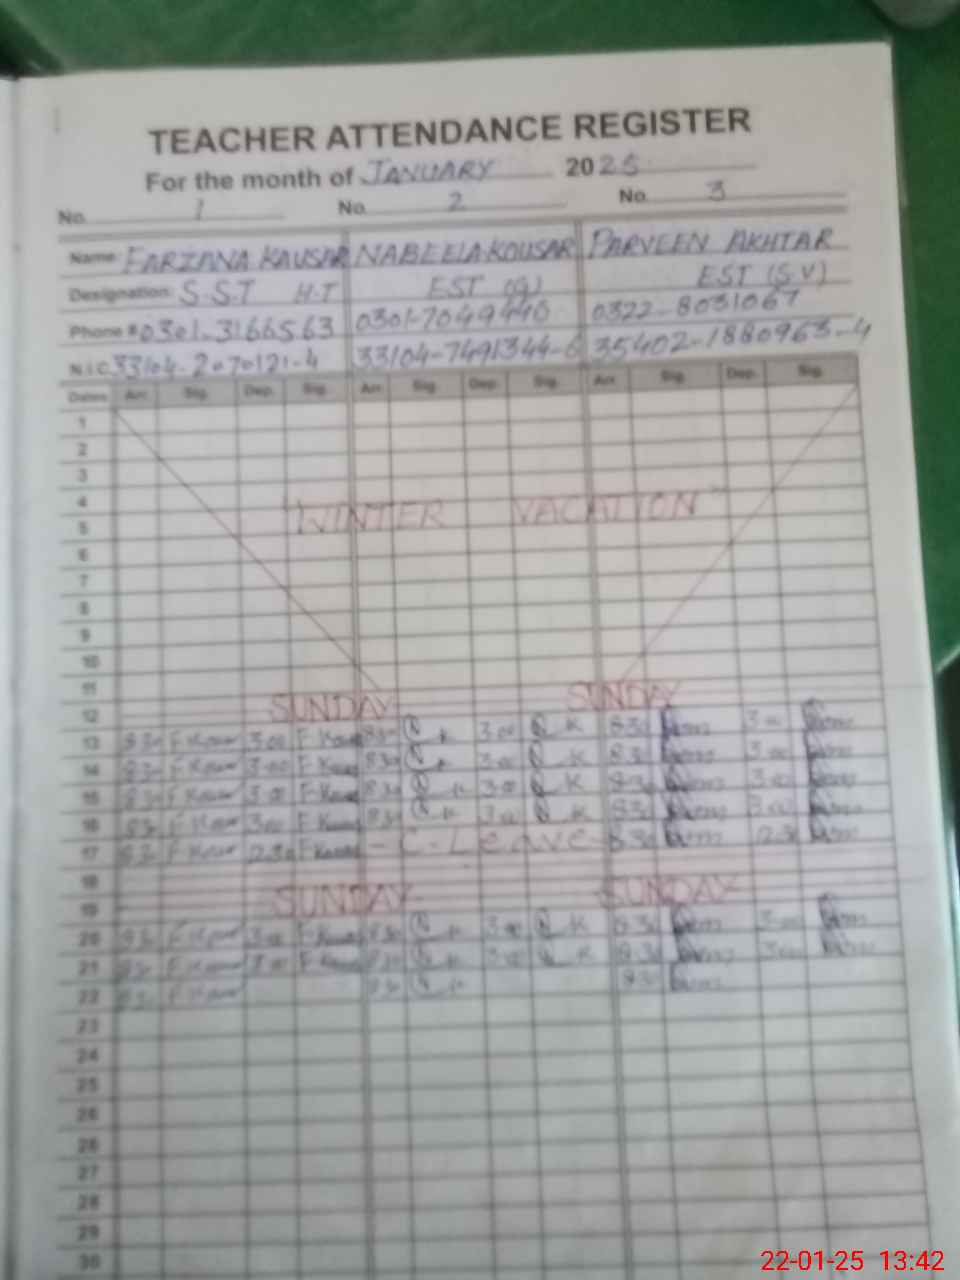 TEACHER ATTENDANCE REGISTER
For the month of JANUARY 2025
No. 1 No. 2 No. 3
Name: FARZANA KAUSAR NABEELA KOUSAR PARVEEN AKHTAR
Designation: S.S.T H.T EST (G) EST (S.V)
Phone # 0301-3166563 0301-7049440 0322-8031067
N.I.C 33104-2070121-4 33104-7491344-6 35402-1880963-4
Dates Arr. Sig. Dep. Sig. Arr. Sig. Dep. Sig. Arr. Sig. Dep. Sig.
1
2
3
4
"WINTER VACATION"
5
6
7
8
9
10
11
SUNDAY SUNDAY
12
13 8:30 F.Kausar 3:00 F.Kausar 8:30 K 3:00 K 8:30 3:00
14 8:30 F.Kausar 3:00 F.Kausar 8:30 K 3:00 K 8:30 3:00
15 8:30 F.Kausar 3:00 F.Kausar 8:30 K 3:00 K 8:30 3:00
16 8:30 F.Kausar 3:00 F.Kausar 8:30 K 3:00 K 8:30 3:00
17 8:30 F.Kausar 12:30 F.Kausar - C-Leave - 8:30 12:30
18
SUNDAY SUNDAY
19
20 8:30 F.Kausar 3:00 F.Kausar 8:30 K 3:00 K 8:30 3:00
21 8:30 F.Kausar 3:00 F.Kausar 8:30 K 3:00 K 8:30 3:00
22 8:30 F.Kausar 8:30 K 8:30
23
24
25
26
26
27
28
29
30
22-01-25 13:42